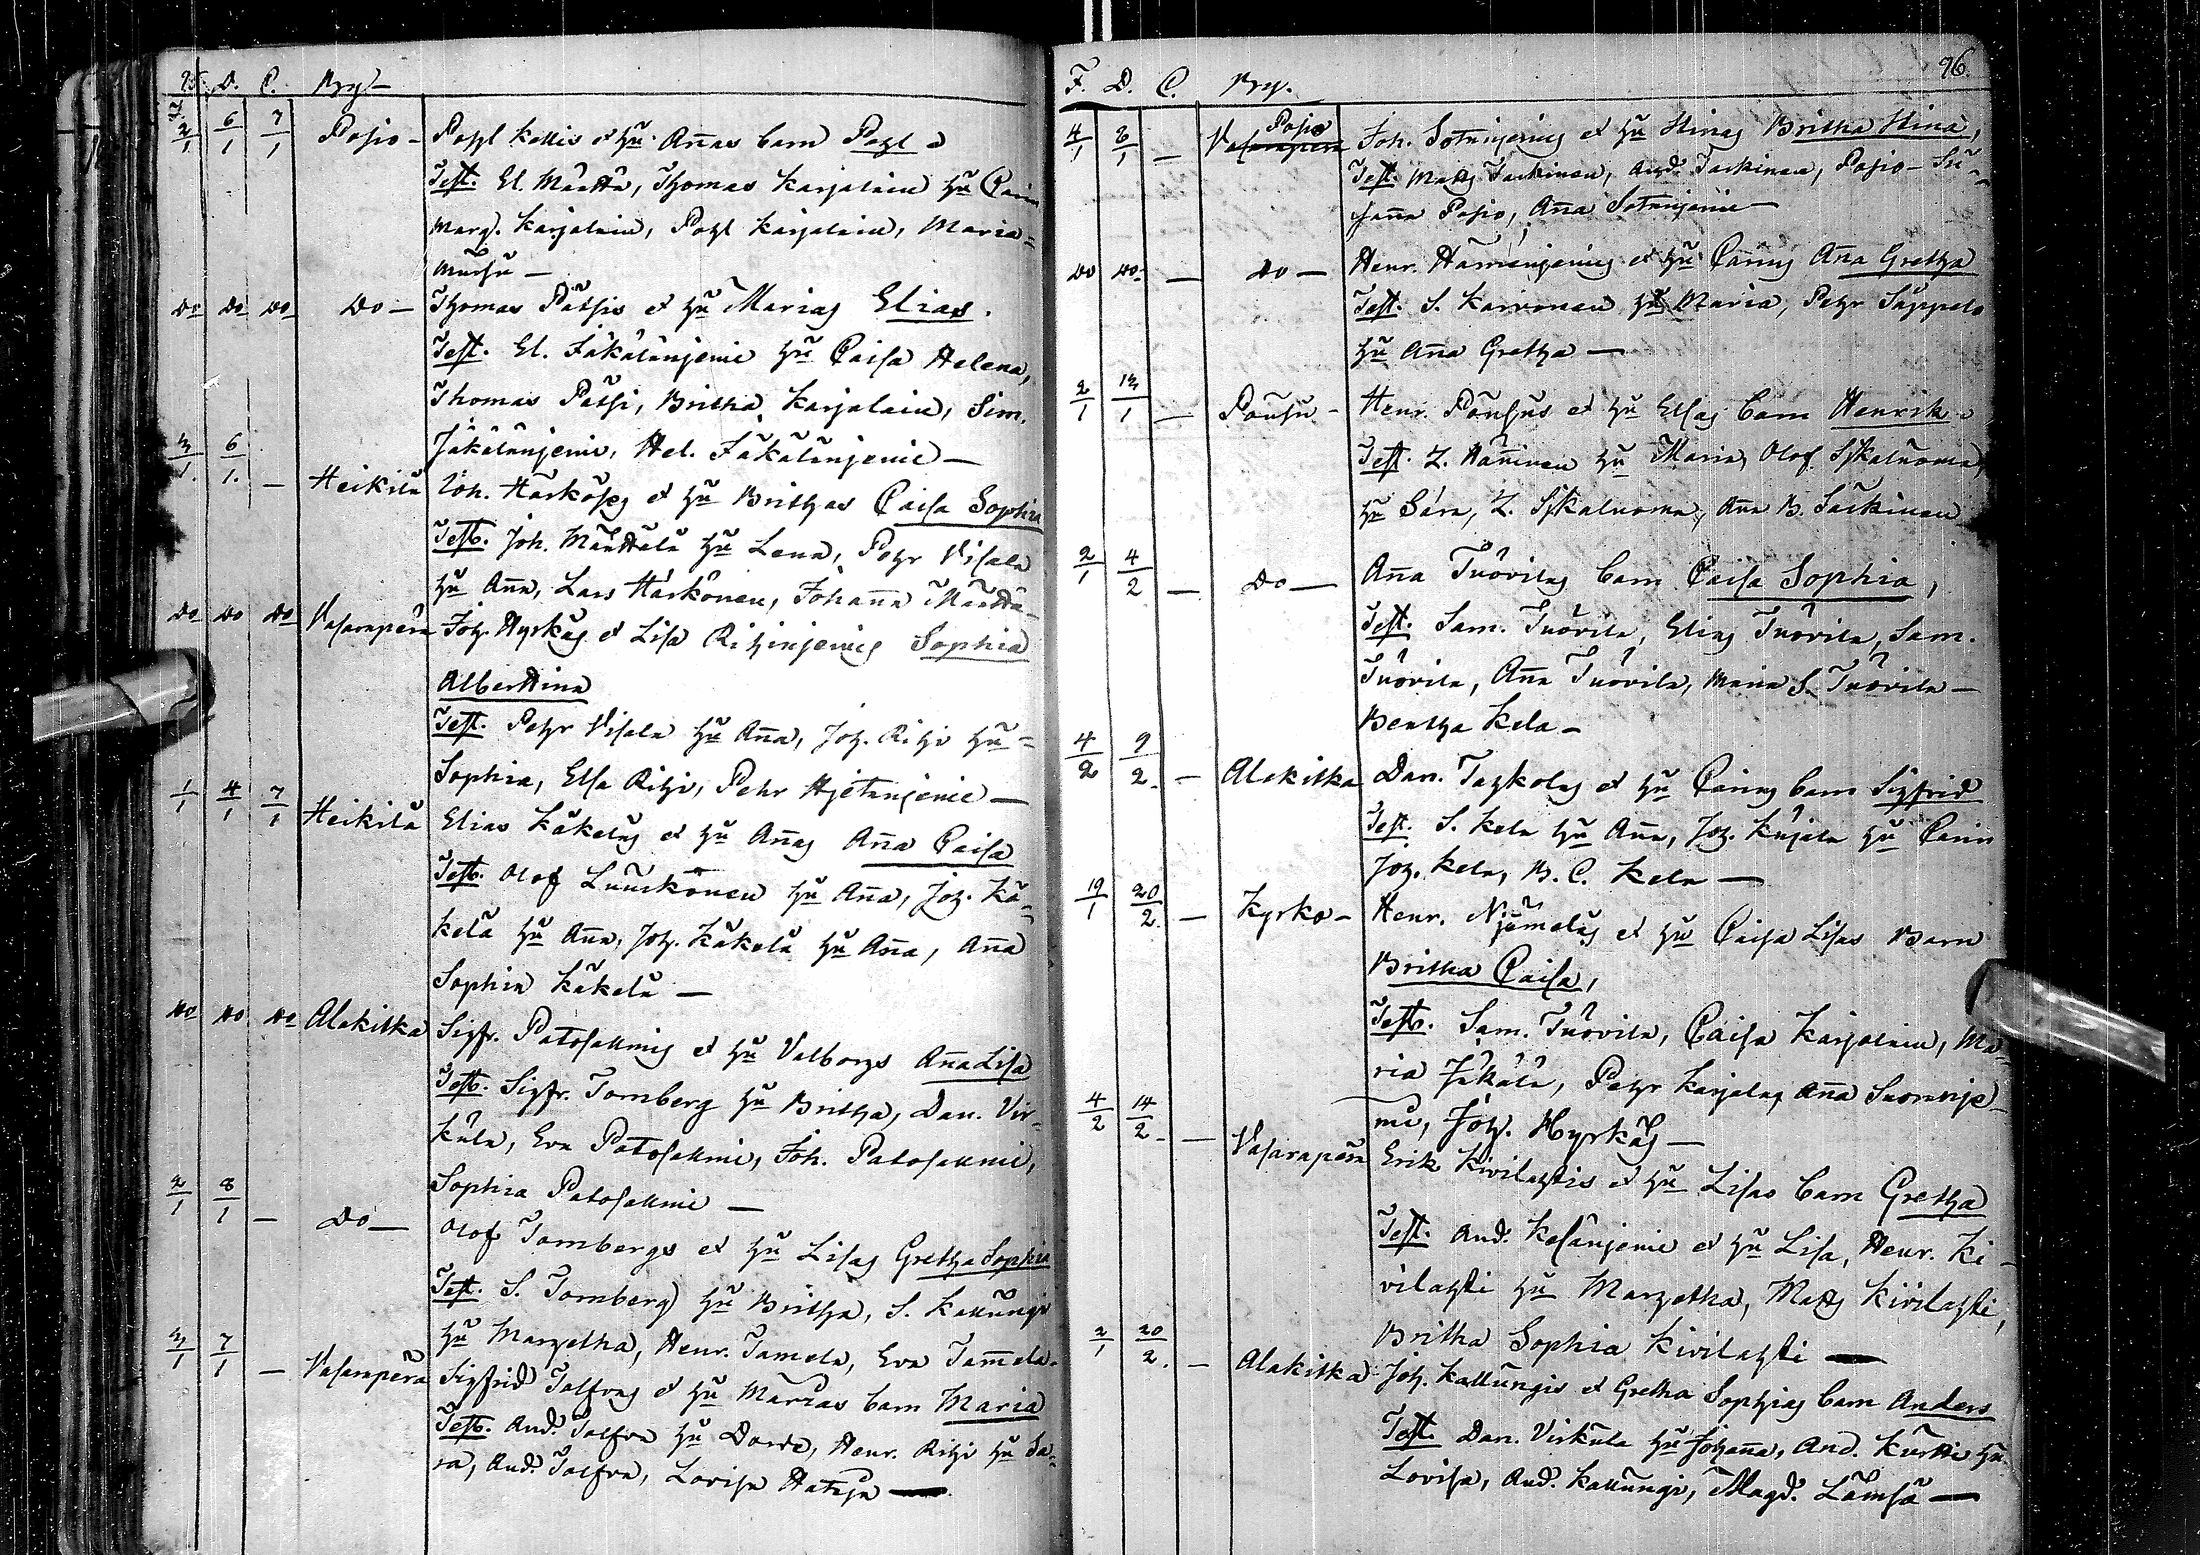 95. D. C. By-
F. 2/1 6/1 7/1 Posio- Pål Kallis et hu Añas barn Påhl
Test. El. Määttä, Thomas Karjalain hu Carin
Marg. Karjalain, Pål Karjalain, Maria
Mursu —
Do Do Do Do — Thomas Pätsis et hu Marias Elias.
Test. El. Jäkäläinjemi hu Caisa Helena,
Thomas Pätsi, Britha Karjalain, Sim.
Jäkälänjemi, Hel. Jäkälänjemi —
3/1. 6/1. — Heikilä Joh. Härkös et hu Brithas Caisa Sophia
Test. Joh. Määttälä hu Lena, Pehr Visala
hu Aña, Lars Härkönen, Johaña Määttä
Do Do Do Vasarapera Joh. Hyrkäs et Lisa Rihinjemis Sophia
Albertina
Test. Pehr Visala hu Aña, Joh. Rihi hu =
Sophia, Elsa Rihi, Pehr Hietanjemi —
1/1 4/1 7/1 Heikilä Elias Käkeläs et hu Añas Aña Caisa
Test. Olof Luuskonen hu Aña, Joh. Kä-
kelä hu Aña, Joh. Käkelä hu Aña, Aña
Sophia Käkelä —
Do Do Do Alakitka Sigfr. Patosalmis et hu Valborgs Aña Lisa
Test. Sigfr. Tornberg hu Britha, Dan. Vir-
kula, Eva Patosalmi, Joh. Patosalmi,
Sophia Patosalmi —
2/1 8/1 — Do — Olof Tornbergs et hu Lisas Gretha Sophia
Test. S. Tornberg hu Britha, S. Kallungi
hu Margetha, Henr. Tamela, Eva Tamela
3/1 7/1 — Vasarapera Sigfrid Tolfvas et hu Marias barn Maria
Test. And. Tolfva hu Dorde, Henr. Rihi hu Sa-
ra, And. Tolfva, Lovisa Hataja —
F. D. C. By. 96
4/1 8/1 — Vasarapera Posio Joh. Sotanjemis et hu Stinas Britha Stina,
Test. Matts Jaskinen, And. Jaskinen, Posio - Su-
saña Posio, Aña Sotanjemi —
Do Do — Do — Henr. Hamenjemis et hu Carins Aña Gretha
Test. S. Karvonen hu Maria, Pehr Säppelä
hu Aña Gretha —
2/1 13/1 — Pousu- Henr. Pousus et hu Elsas barn Henrik
Test. Z. Hänninen hu Maria, Olof Iskaluoma
hu Sara, Z. Iskaluoma, Aña B. Särkinen
2/1 4/2 — Do — Aña Tuovilas barn Caisa Sophia,
Test. Sam. Tuovila, Elias Tuovila, Sam.
Tuovila, Aña Tuovila, Maria S. Tuovila —
Beatha Kela —
4/2 9/2. — Alakitka Dan. Tahkolas et hu Carins barn Sigfrid
Test. S. Kela hu Aña, Joh. Kujala hu Carin
Joh. Kela, B. C. Kela —
19/1 20/2. — Kyrko- Henr. Njämeläs et hu Caisa Lisas Barn
Britha Caisa,
Test. Sam. Tuovila, Caisa Karjalain, Ma-
ria Jäkälä, Pehr Karjala, Aña Suornje-
mi, Joh. Hyrkäs —
4/2 14/2. — Vasarapera Erik Kivilahtis et hu Lisas barn Gretha
Test. And. Kesänjemi et hu Lisa, Henr. Ki-
vilahti hu Margetha, Matts Kivilahti,
Britha Sophia Kivilahti —
2/1 20/2. — Alakitka Joh. Kallungis et Gretha Sophias barn Anders
Test. Dan. Virkula hu Johaña, And. Kurtti hu
Lovisa, And. Kallungi, Magd. Lämsä —